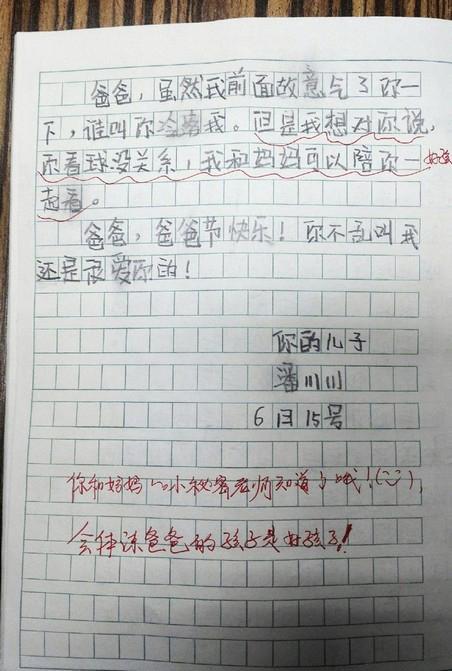 爸爸，虽然我前面故意气了你一
下，谁叫你冷落我。但是我想对你说，
你看球没关系，我和妈妈可以陪你一
起看。
好孩
爸爸，爸爸节快乐！你不乱叫我
还是很爱你的！
你的儿子
潘川川
6月15号
你和妈妈的小秘密老师知道了哦！
会体谅爸爸的孩子是好孩子！